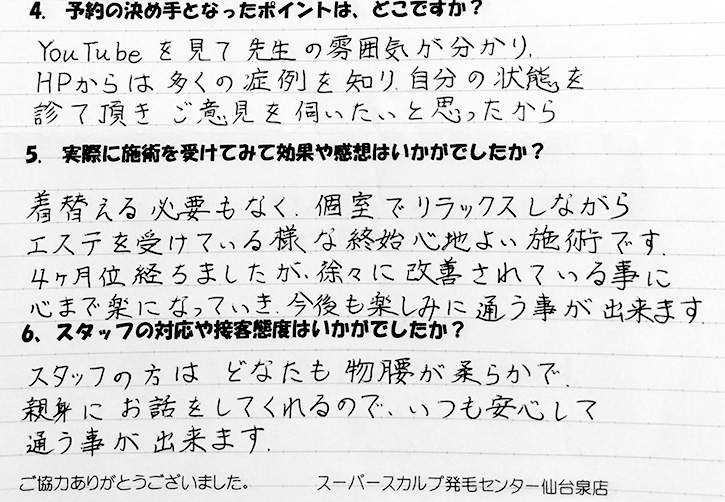 4. 予約の決め手となったポイントは、どこですか？
YouTubeを見て先生の雰囲気が分かり、
HPからは多くの症例を知り自分の状態を
診て頂きご意見を伺いたいと思ったから
5. 実際に施術を受けてみて効果や感想はいかがでしたか？
着替える必要もなく、個室でリラックスしながら
エステを受けている様な終始心地よい施術です。
4ヶ月位経ちましたが、徐々に改善されている事に
心まで楽になっていき、今後も楽しみに通う事が出来ます
6、スタッフの対応や接客態度はいかがでしたか？
スタッフの方はどなたも物腰が柔らかで、
親身にお話をしてくれるので、いつも安心して
通う事が出来ます。
ご協力ありがとうございました。 スーパースカルプ発毛センター仙台泉店